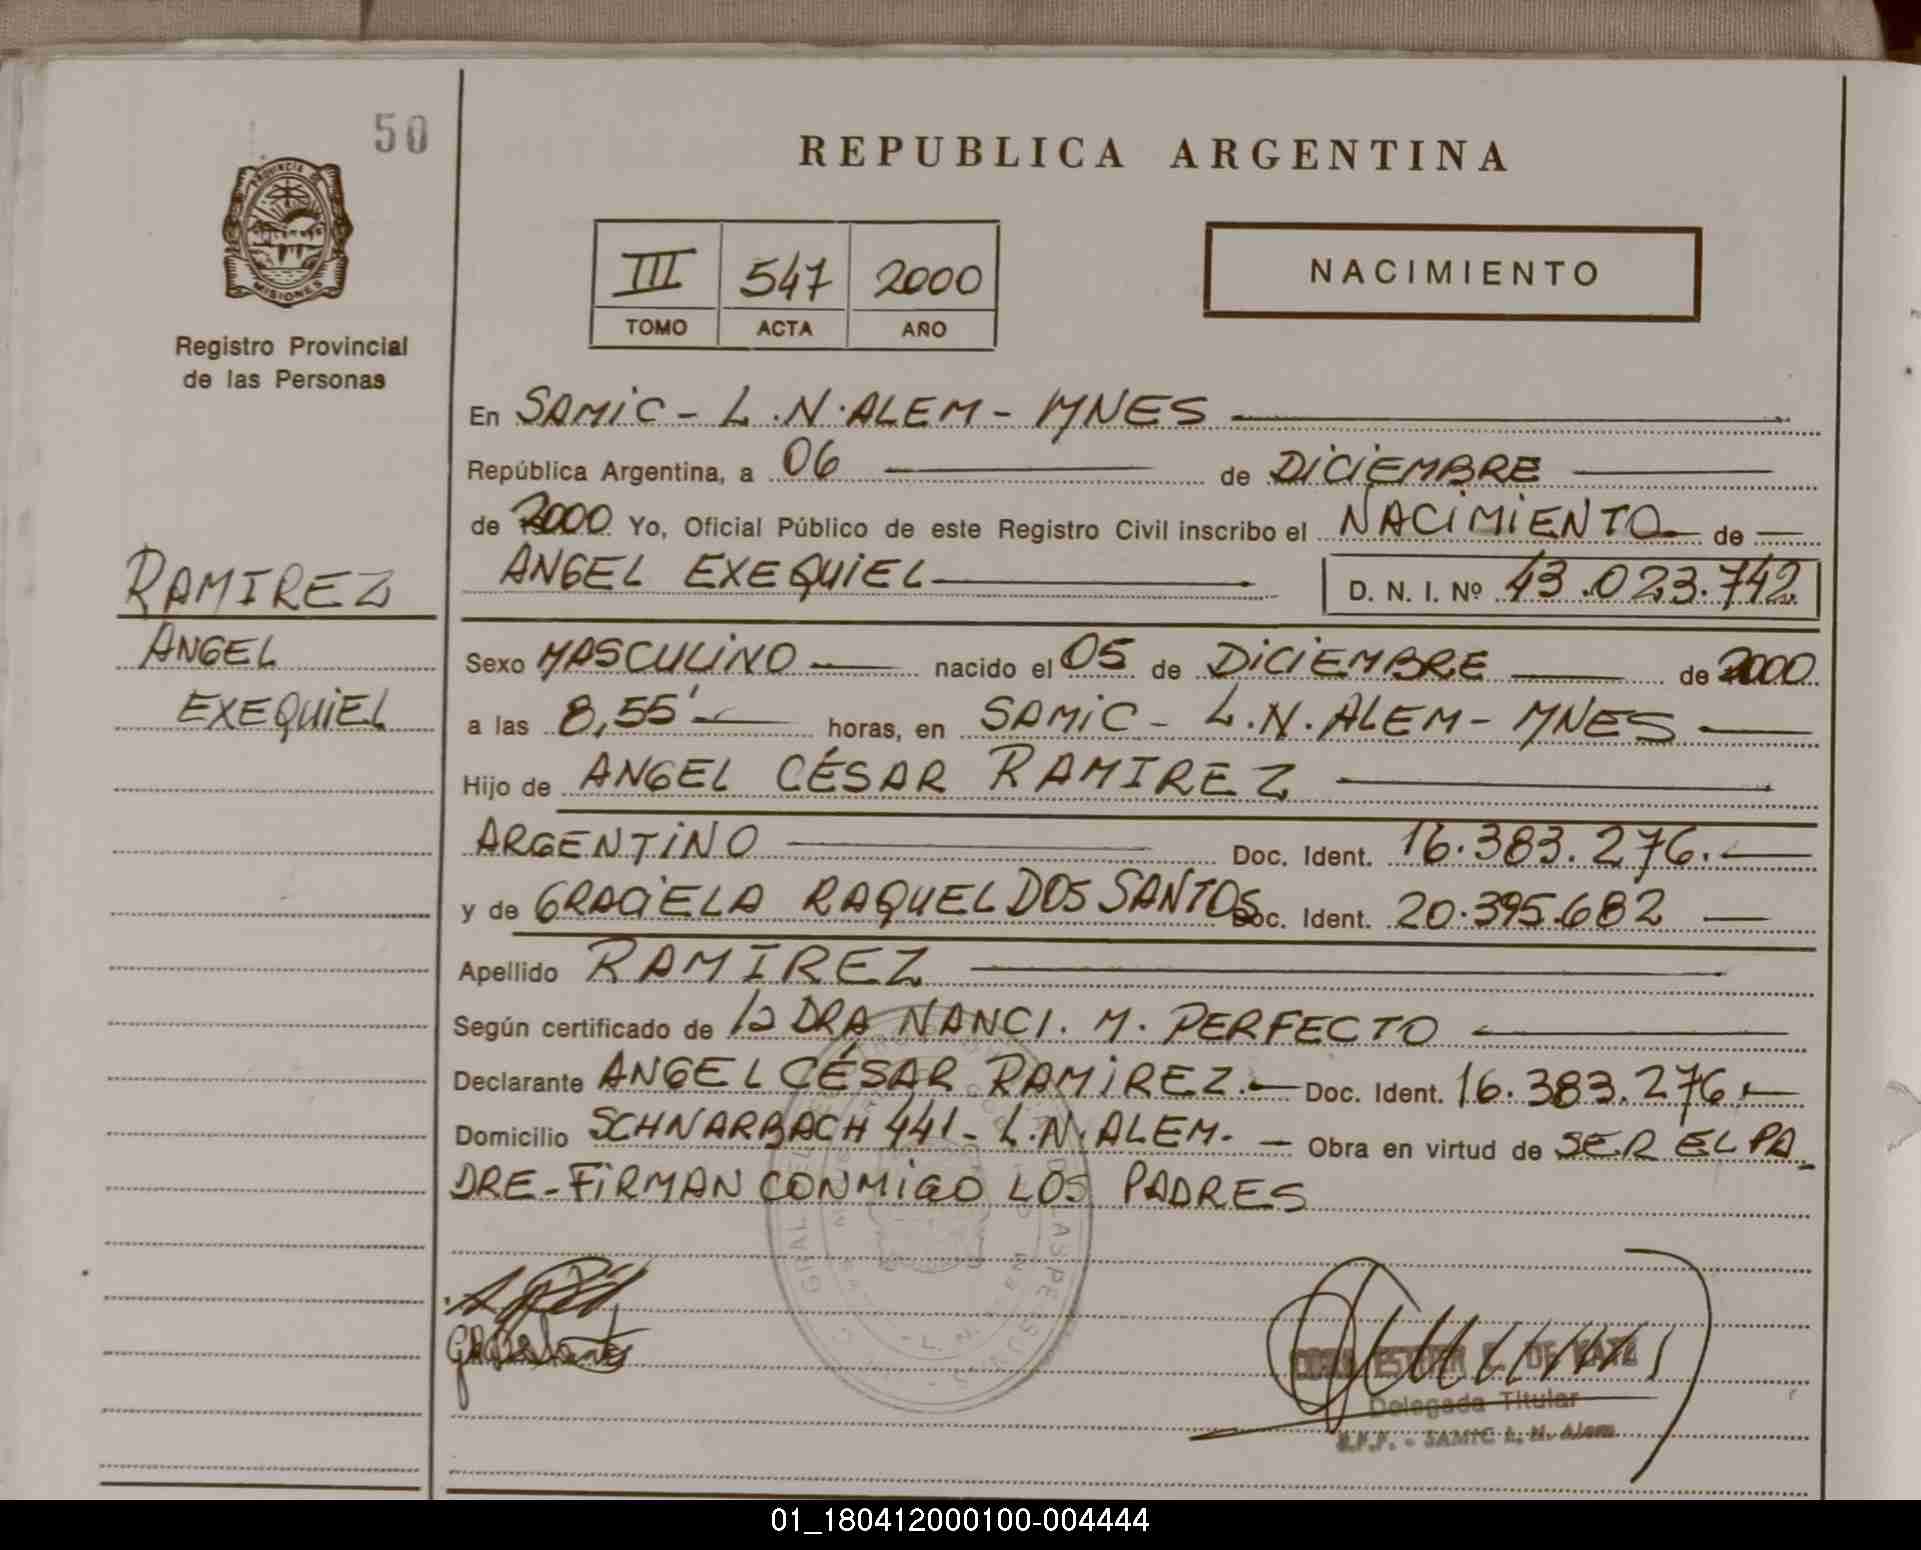 50
REPUBLICA ARGENTINA
PROVINCIA DE
MISIONES
Registro Provincial
de las Personas
III 547 2000
TOMO ACTA AÑO
NACIMIENTO
En SAMiC - L.N.ALEM - MNES
República Argentina, a 06 de DiCiEMBRE
de 2000 Yo, Oficial Público de este Registro Civil inscribo el NACiMiENTO de
ANGEL EXEQUiEL D. N. I. Nº 43.023.742
RAMIREZ
ANGEL
EXEQUiEL
Sexo MASCULiNO nacido el 05 de DiCiEMBRE de 2000
a las 8,55' horas, en SAMiC - L.N.ALEM - MNES
Hijo de ANGEL CÉSAR RAMIREZ
ARGENTiNO Doc. Ident. 16.383.276.
y de GRACiELA RAQUEL DOS SANTOS Doc. Ident. 20.395.682
Apellido RAMIREZ
Según certificado de la DRA NANCI. M. PERFECTO
Declarante ANGEL CÉSAR RAMiREZ. Doc. Ident. 16.383.276.
Domicilio SCHNARBACH 441 - L.N.ALEM. - Obra en virtud de SER EL PA-
DRE - FiRMAN CONMiGO LOS PADRES
ESTHER DE
Delegada Titular
SAMIC L. N. Alem
01_180412000100-004444